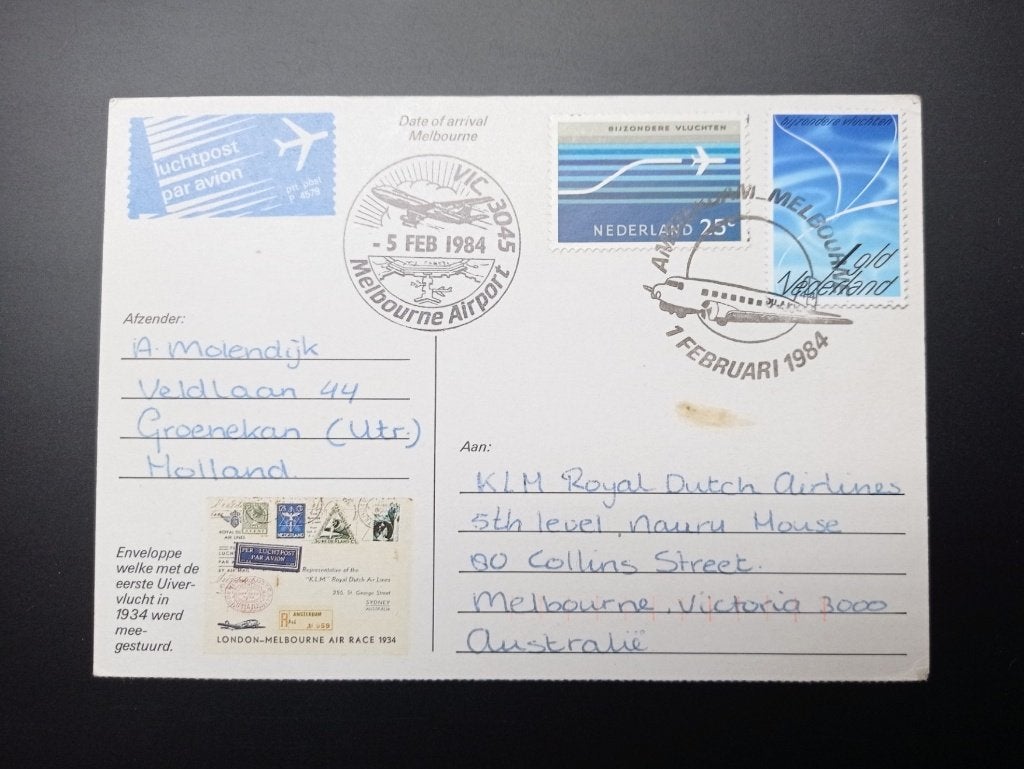 luchtpost
par avion
ptt post
P 4579
Date of arrival
Melbourne
VIC. 3045
- 5 FEB 1984
Melbourne Airport
BIJZONDERE VLUCHTEN
NEDERLAND 25c
bijzondere vluchten
1 gld
Nederland
AMSTERDAM-MELBOURNE
1 FEBRUARI 1984
Afzender:
A. Molendijk
Veldlaan 44
Groenekan (Utr.)
Holland.
Aan:
KLM Royal Dutch Airlines
5th level, Nauru House
80 Collins Street.
Melbourne, Victoria 3000
Australië
Enveloppe
welke met de
eerste Uiver-
vlucht in
1934 werd
mee-
gestuurd.
NEDERLAND
PER LUCHTPOST
PAR AVION
Representative of the
"K.L.M" Royal Dutch Air Lines
256, St. George Street
SYDNEY
AUSTRALIA
R
AMSTERDAM
LONDON-MELBOURNE AIR RACE 1934